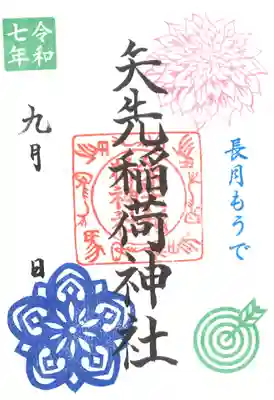 令和
七年
長月もうで
矢先稲荷神社
九月 日